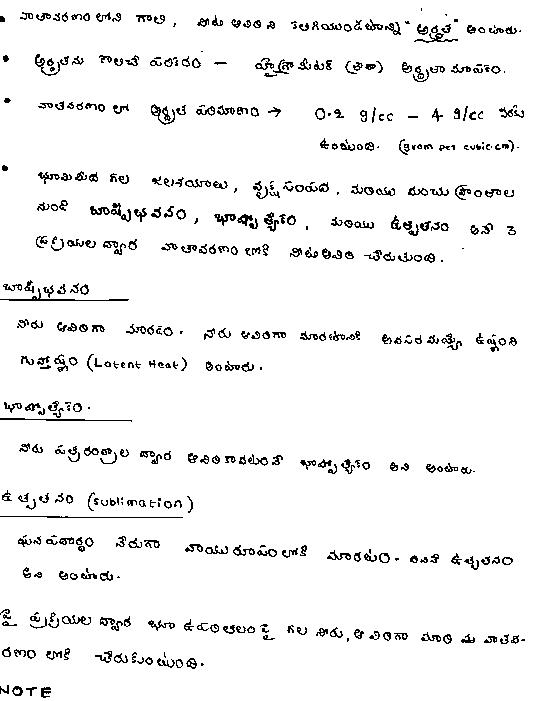 • వాతావరణంలోని గాలి, నీటి ఆవిరిని కలిగియుండటాన్ని "ఆర్ద్రత" అంటారు.
• ఆర్ద్రతను గొలచే పరికరం – హైగ్రోమీటర్ (లేదా) ఆర్ద్రతా మాపకం.
• వాతవరణం లో ఆర్ద్రత పరిమాణం → 0.2 g/cc – 4 g/cc వరకు
ఉంటుంది. (gram per cubic cm).
• భూమిమీద గల జలాశయాలు, వృక్ష సంపద, మరియు మంచు ప్రాంతాల
నుండి బాష్పీభవనం, భాష్పోత్సేకం, మరియు ఉత్పతనం అనే 3
ప్రక్రియల ద్వారా వాతావరణం లోకి నీటిఆవిరి చేరుతుంది.
బాష్పీభవనం
నీరు ఆవిరిగా మారడం. నీరు ఆవిరిగా మారటానికి అవసరమయ్యే ఉష్ణంని
గుప్తోష్ణం (Latent Heat) అంటారు.
భాష్పోత్సేకం.
నీరు పత్రరంధ్రాల ద్వారా ఆవిరికావటంనే భాష్పోత్సేకం అని అంటారు.
ఉత్పతనం (sublimation)
ఘనపదార్థం నేరుగా వాయురూపం లోకి మారటం. అనేది ఉత్పతనం
అని అంటారు.
పై ప్రక్రియల ద్వారా భూ ఉపరితలం పై గల నీరు, ఆవిరిగా మారి వాతవ-
రణం లోకి చేరుకుంటుంది.
NOTE